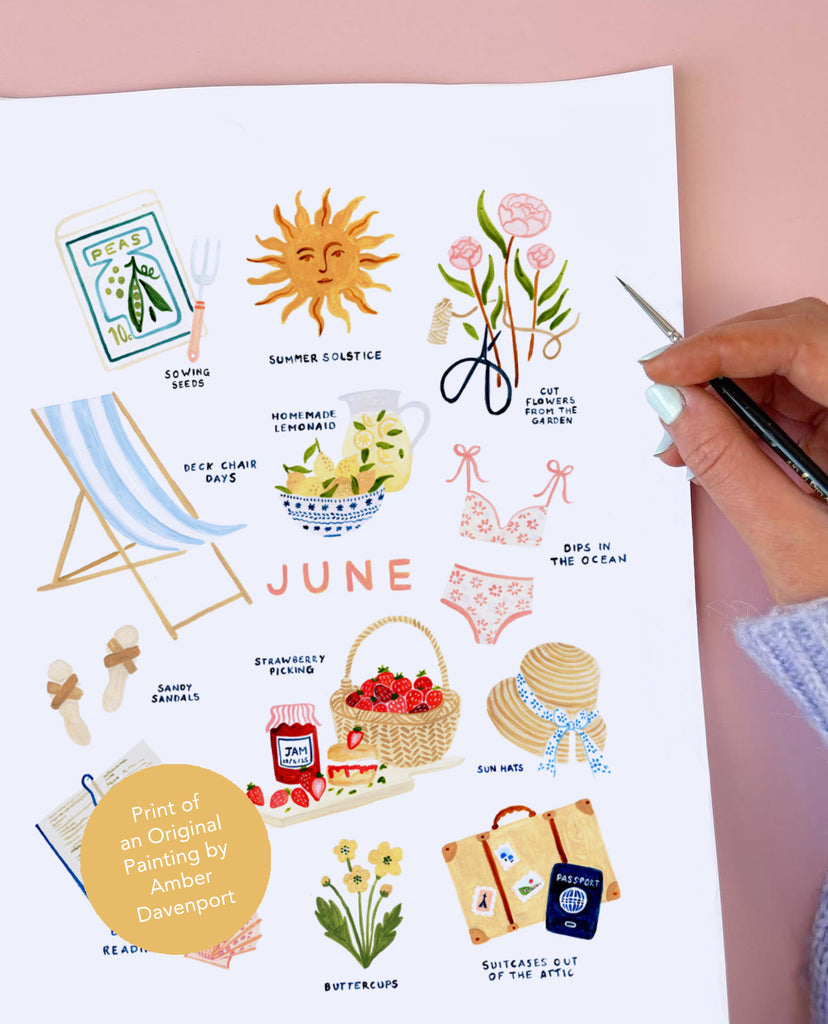 PEAS
10c
SOWING
SEEDS
SUMMER SOLSTICE
CUT
FLOWERS
FROM THE
GARDEN
HOMEMADE
LEMONAID
DECK CHAIR
DAYS
DIPS IN
THE OCEAN
JUNE
STRAWBERRY
PICKING
SANDY
SANDALS
JAM
SUN HATS
Print of
an Original
Painting by
Amber
Davenport
PASSPORT
BUTTERCUPS
SUITCASES OUT
OF THE ATTIC